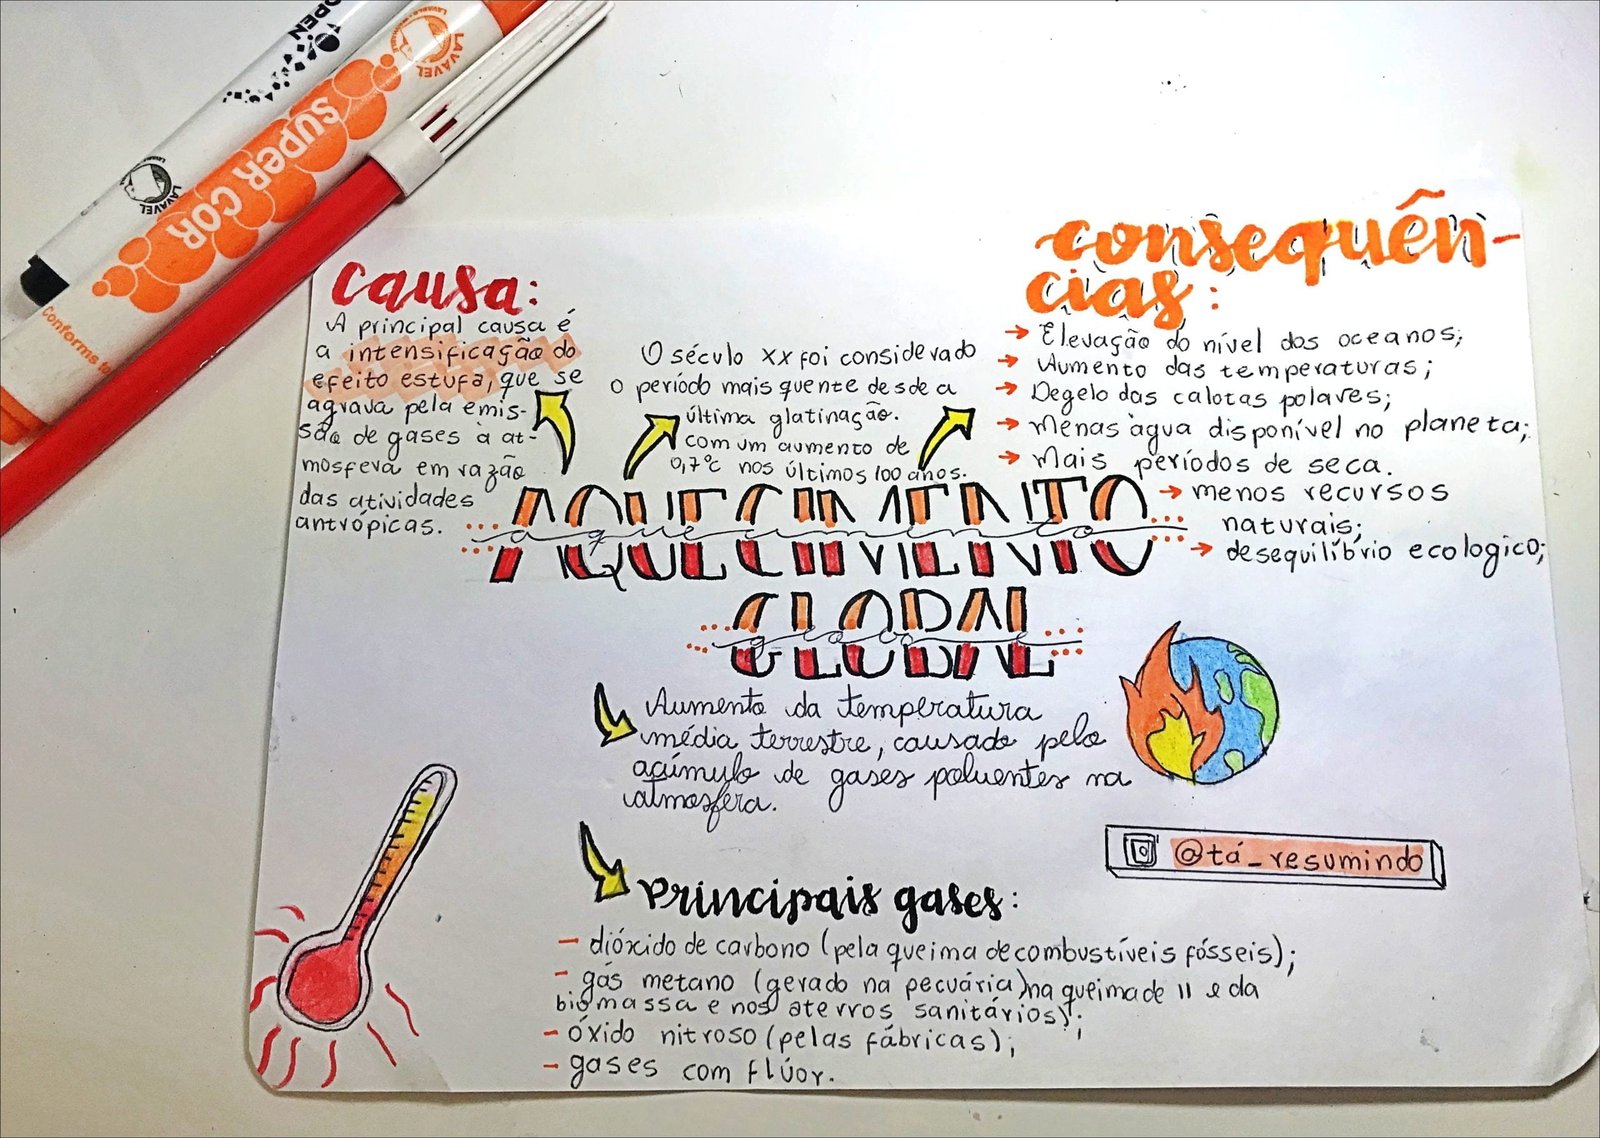 OPEN
LAVÁVEL
SUPER COR
LAVÁVEL
Conforms to
causa:
A principal causa é
a intensificação do
efeito estufa, que se
agrava pela emis-
são de gases à at-
mosfera em razão
das atividades
antrópicas.
O século XX foi considerado
o período mais quente desde a
última glatinação.
com um aumento de
0,7°c nos últimos 100 anos.
consequên-
cias:
→ Elevação do nível dos oceanos;
→ Aumento das temperaturas;
→ Degelo das calotas polares;
→ Menas àgua disponível no planeta;
→ Mais períodos de seca.
→ menos recursos
naturais;
→ desequilíbrio ecologico;
AQUECIMENTO
aquecimento
GLOBAL
global
Aumento da temperatura
média terrestre, causado pelo
acúmulo de gases poluentes na
atmosfera.
@tá_resumindo
Principais gases:
- dióxido de carbono (pela queima de combustíveis fósseis);
- gás metano (gerado na pecuária) na queima de 11 e da
biomassa e nos aterros sanitários);
- óxido nitroso (pelas fábricas);
- gases com flúor.